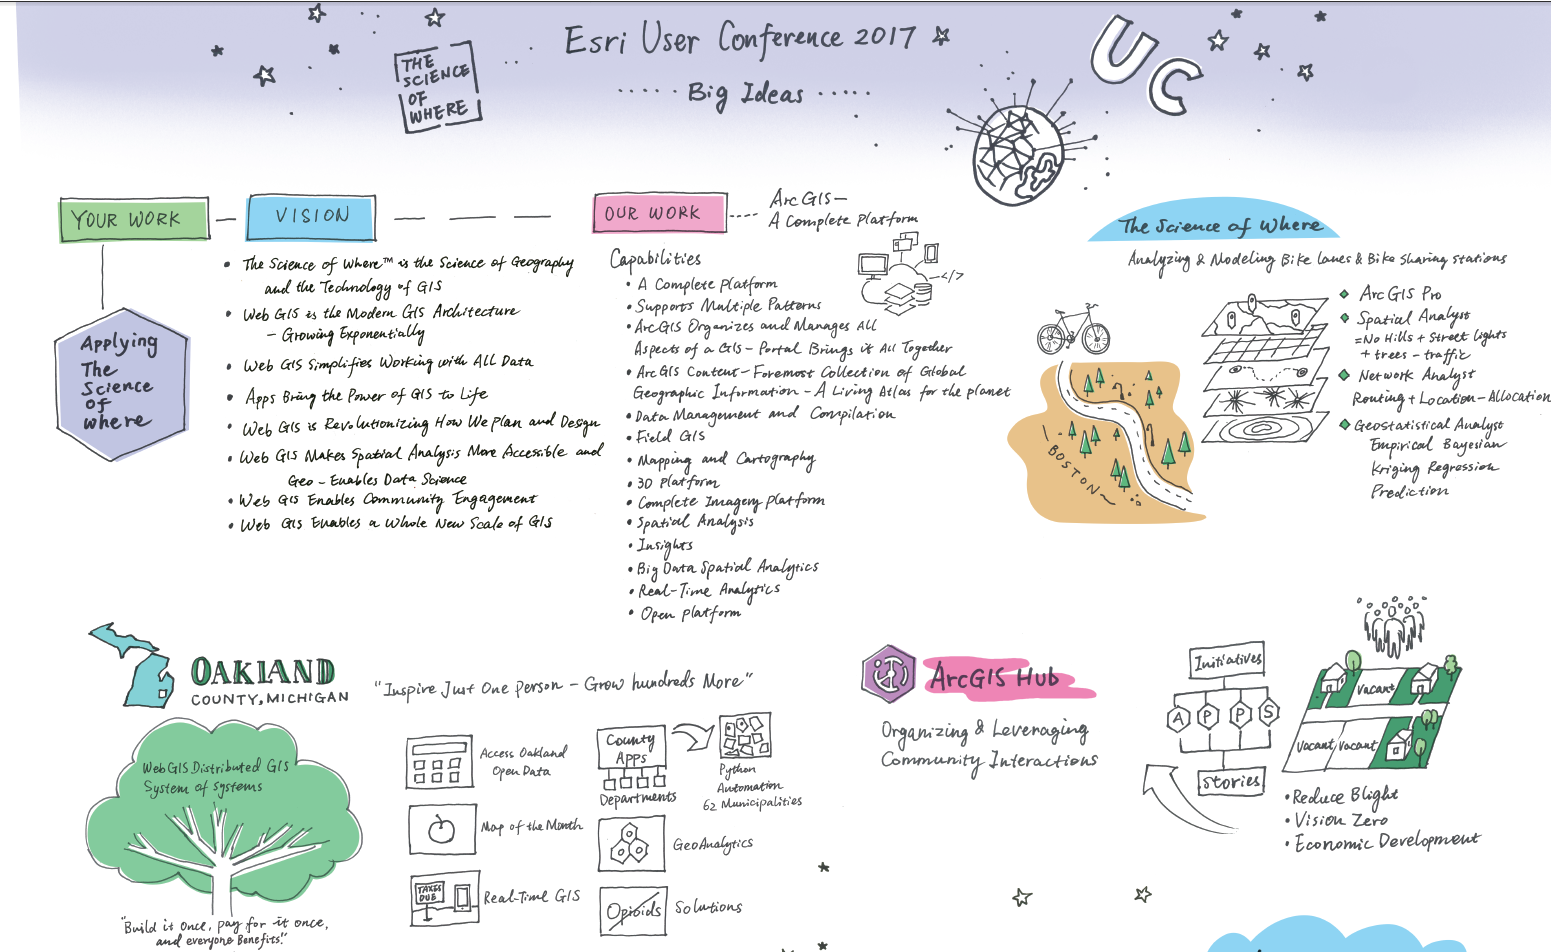 Esri User Conference 2017
Big Ideas
THE
SCIENCE
OF
WHERE
UC
YOUR WORK
VISION
OUR WORK
ArcGIS—
A Complete Platform
Applying
The
Science
of
where
• The Science of Where™ is the Science of Geography
and the Technology of GIS
• Web GIS is the Modern GIS Architecture
– Growing Exponentially
• Web GIS Simplifies Working with All Data
• Apps Bring the Power of GIS to Life
• Web GIS is Revolutionizing How We Plan and Design
• Web GIS Makes Spatial Analysis More Accessible and
Geo-Enables Data Science
• Web GIS Enables Community Engagement
• Web GIS Enables a Whole New Scale of GIS
Capabilities
• A Complete Platform
• Supports Multiple Patterns
• ArcGIS Organizes and Manages All
Aspects of a GIS – Portal Brings it All Together
• ArcGIS Content – Foremost Collection of Global
Geographic Information – A Living Atlas for the planet
• Data Management and Compilation
• Field GIS
• Mapping and Cartography
• 3D Platform
• Complete Imagery Platform
• Spatial Analysis
• Insights
• Big Data Spatial Analytics
• Real-Time Analytics
• Open Platform
</>
The Science of Where
Analyzing & Modeling Bike Lanes & Bike Sharing Stations
BOSTON
ArcGIS Pro
Spatial Analyst
=No Hills + Street lights
+ trees – traffic
Network Analyst
Routing + Location – Allocation
Geostatistical Analyst
Empirical Bayesian
Kriging Regression
Prediction
OAKLAND
COUNTY, MICHIGAN
"Inspire Just One Person – Grow hundreds More"
WebGIS Distributed GIS
System of Systems
"Build it Once, pay for it once,
and everyone Benefits."
Access Oakland
Open Data
Map of the Month
TAXES
DUE
Real-Time GIS
County
Apps
Departments
Python
Automation
62 Municipalities
GeoAnalytics
Opioids
Solutions
ArcGIS Hub
Organizing & Leveraging
Community Interactions
Initiatives
A P P S
Stories
Vacant
Vacant Vacant
• Reduce Blight
• Vision Zero
• Economic Development